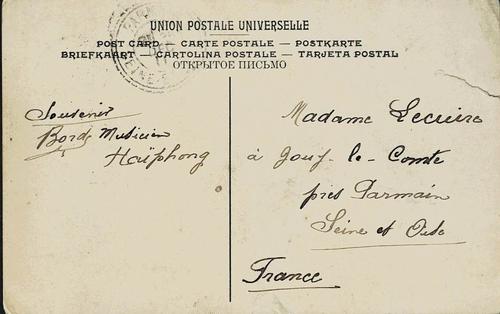 UNION POSTALE UNIVERSELLE
POST CARD — CARTE POSTALE — POSTKARTE
BRIEFKAART — CARTOLINA POSTALE — TARJETA POSTAL
ОТКРЫТОЕ ПИСЬМО
Souvenir
Musicien
Haïphong
Madame Lecuire
à Jouy-le-Comte
près Parmain
Seine et Oise
France